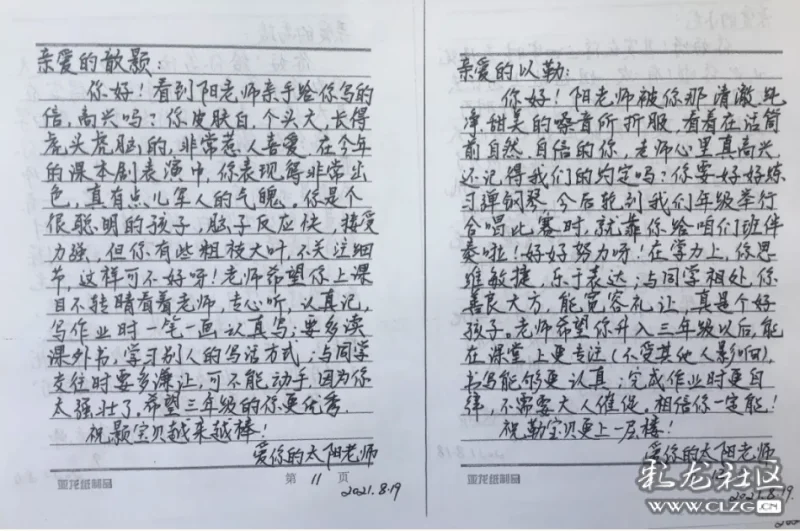 亲爱的散颢：
你好！看到阳老师亲手给你写的
信，高兴吗？你皮肤白，个头大，长得
虎头虎脑的，非常惹人喜爱。在今年
的课本剧表演中，你表现得非常出
色，真有点儿军人的气魄，你是个
很聪明的孩子，脑子反应快，接受
力强，但你有些粗枝大叶，不关注细
节，这样可不好呀！老师希望你上课
目不转睛看着老师，专心听，认真记，
写作业时一笔一画认真写；要多读
课外书，学习别人的写法方式；与同学
交往时要多谦让，可不能动手，因为你
太强壮了，希望三年级的你更优秀。
祝颢宝贝越来越棒！
爱你的太阳老师
亚龙纸制品 第 11 页
2021.8.19
亲爱的以勒：
你好！阳老师被你那清澈、纯
净、甜美的嗓音所折服，看着在话筒
前自然、自信的你，老师心里真高兴，
还记得我们的约定吗？你要好好练
习弹钢琴，今后轮到我们年级举行
合唱比赛时，就靠你给咱们班伴
奏啦！好好努力呀！在学力上，你思
维敏捷，乐于表达；与同学相处，你
善良大方，能宽容礼让，真是个好
孩子。老师希望你升入三年级以后，能
在课堂上更专注（不受其他人影响），
书写能够更认真；完成作业时更自
律，不需要大人催促，相信你一定能！
祝勒宝贝更上一层楼！
爱你的太阳老师
亚龙纸制品
2021.8.19
彩龙社区
WWW.CLZG.CN